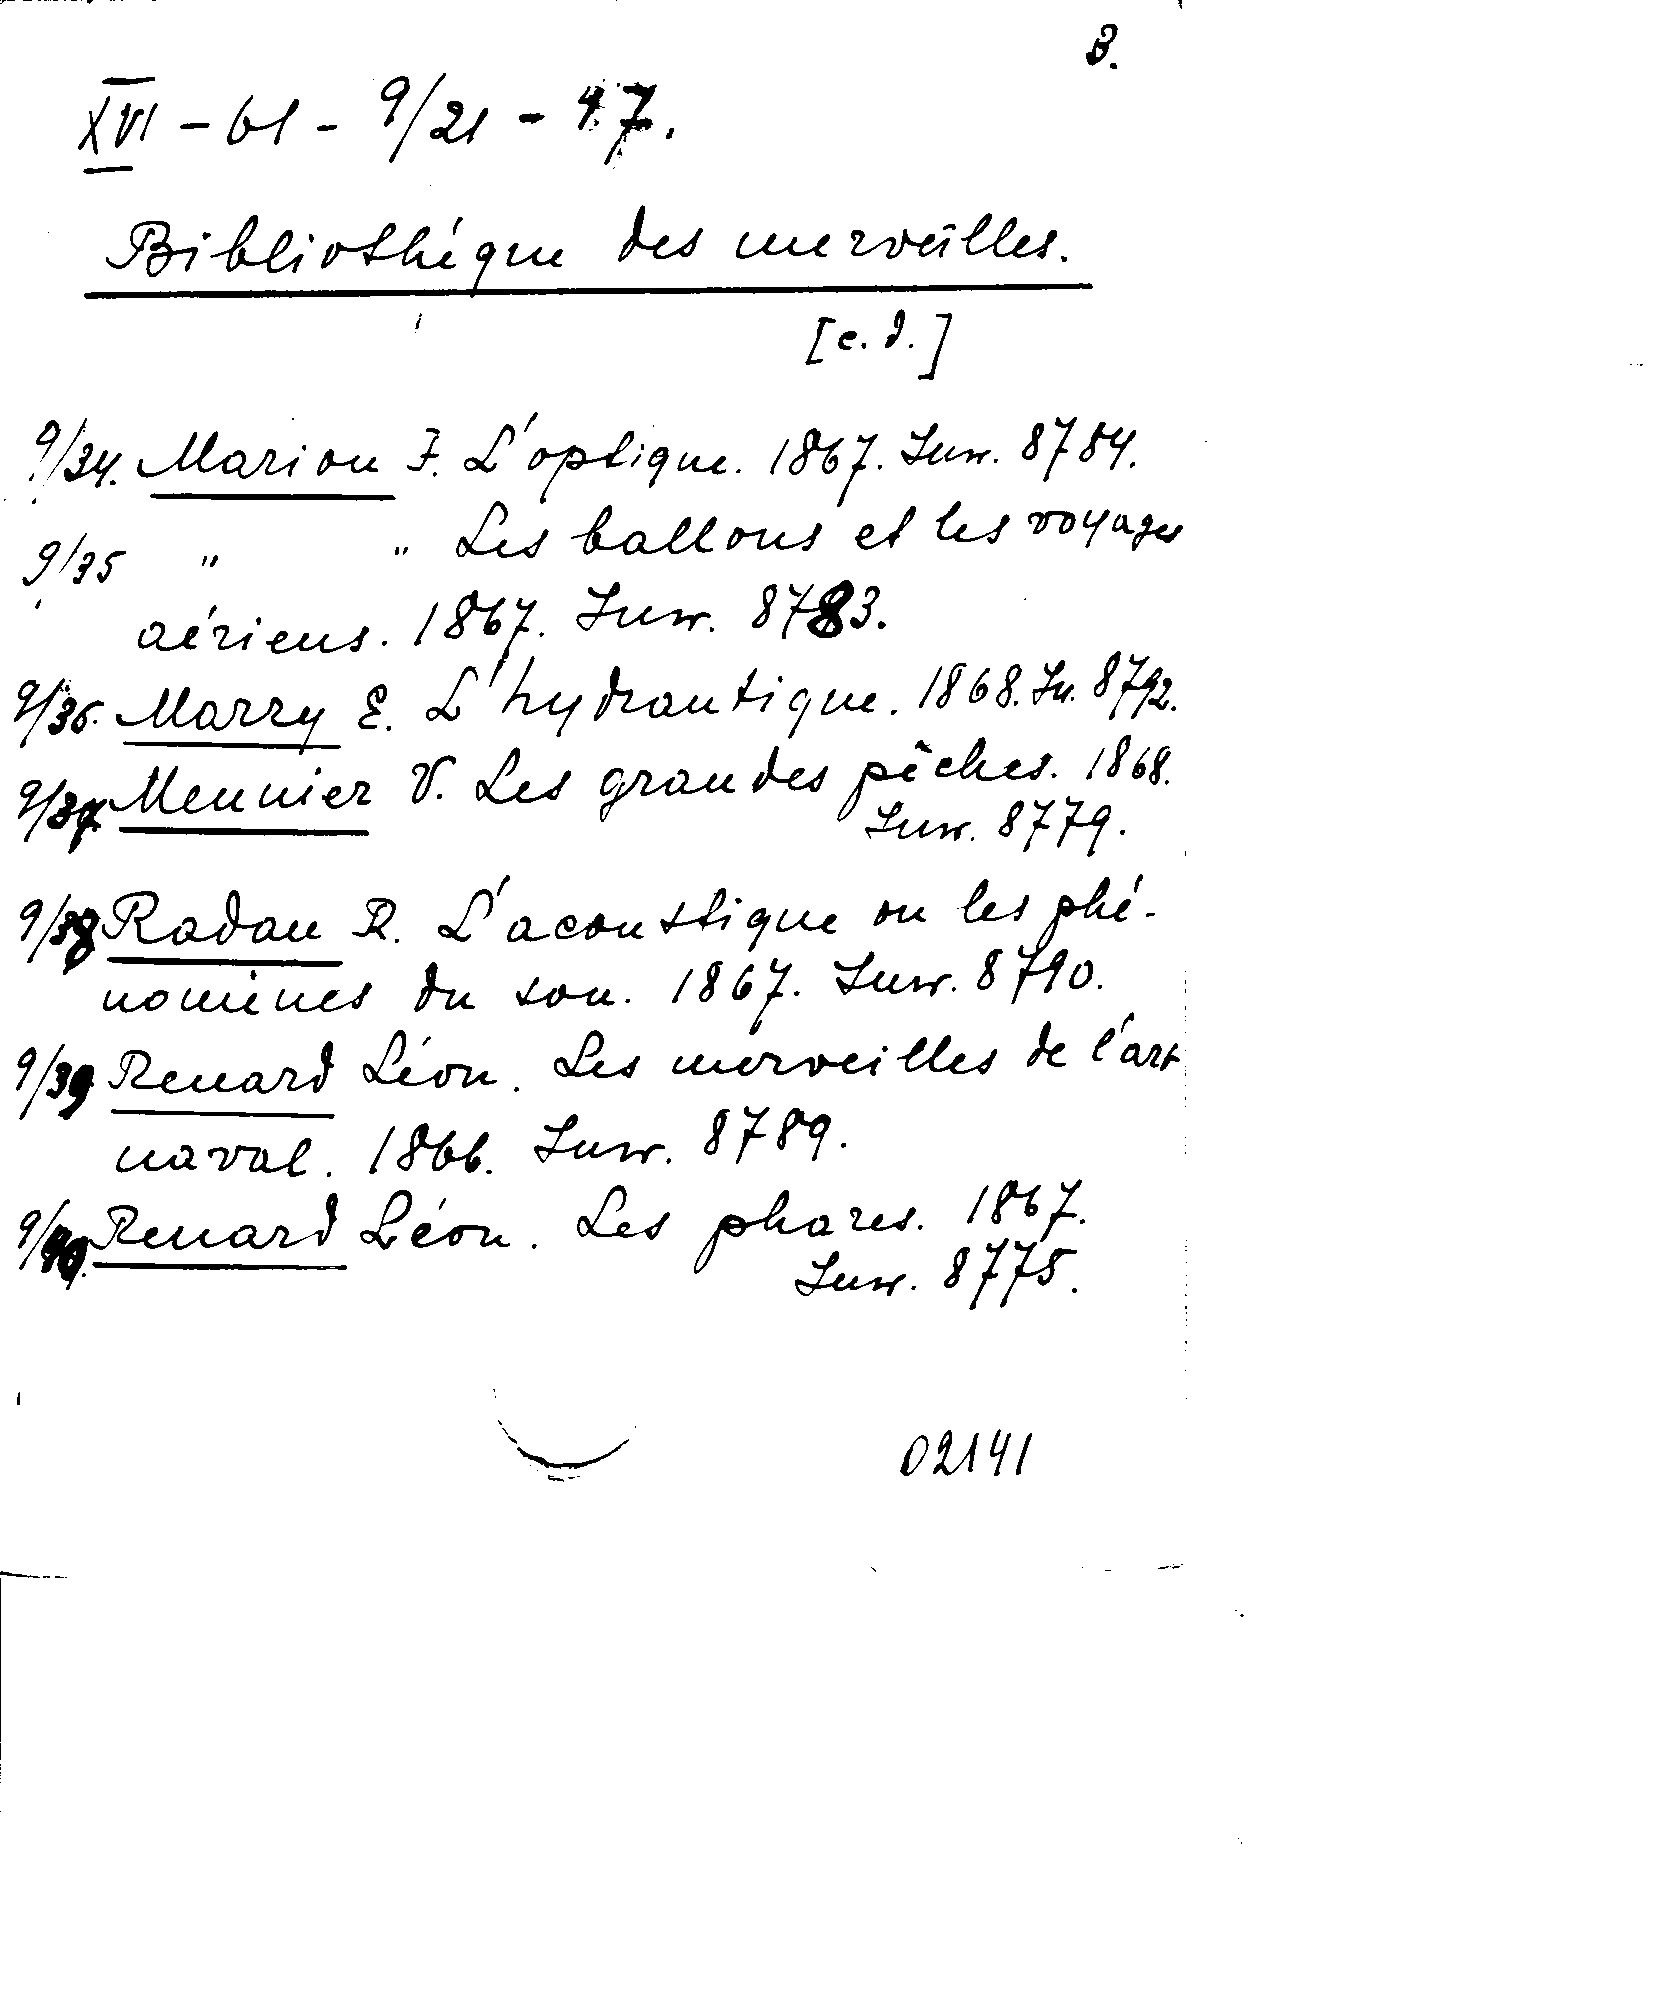 3.
XVI - 61 - 9/21 - 47.
Bibliothéque des merveilles.
[c.d.]
9/34. Marion F. L'optique. 1867. Inw. 8784.
9/35 " " Les ballons et les voyages
aériens. 1867. Inw. 8783.
9/36. Marzy E. L'hydrautique. 1868. In. 8792.
9/37. Meunier V. Les grandes pêches. 1868.
Inw. 8779.
9/38 Radau R. L'acoustique ou les phé-
nomènes du son. 1867. Inw. 8790.
9/39 Renard Léon. Les merveilles de l'art
naval. 1866. Inw. 8789.
9/40. Renard Léon. Les phares. 1867.
Inw. 8775.
02141